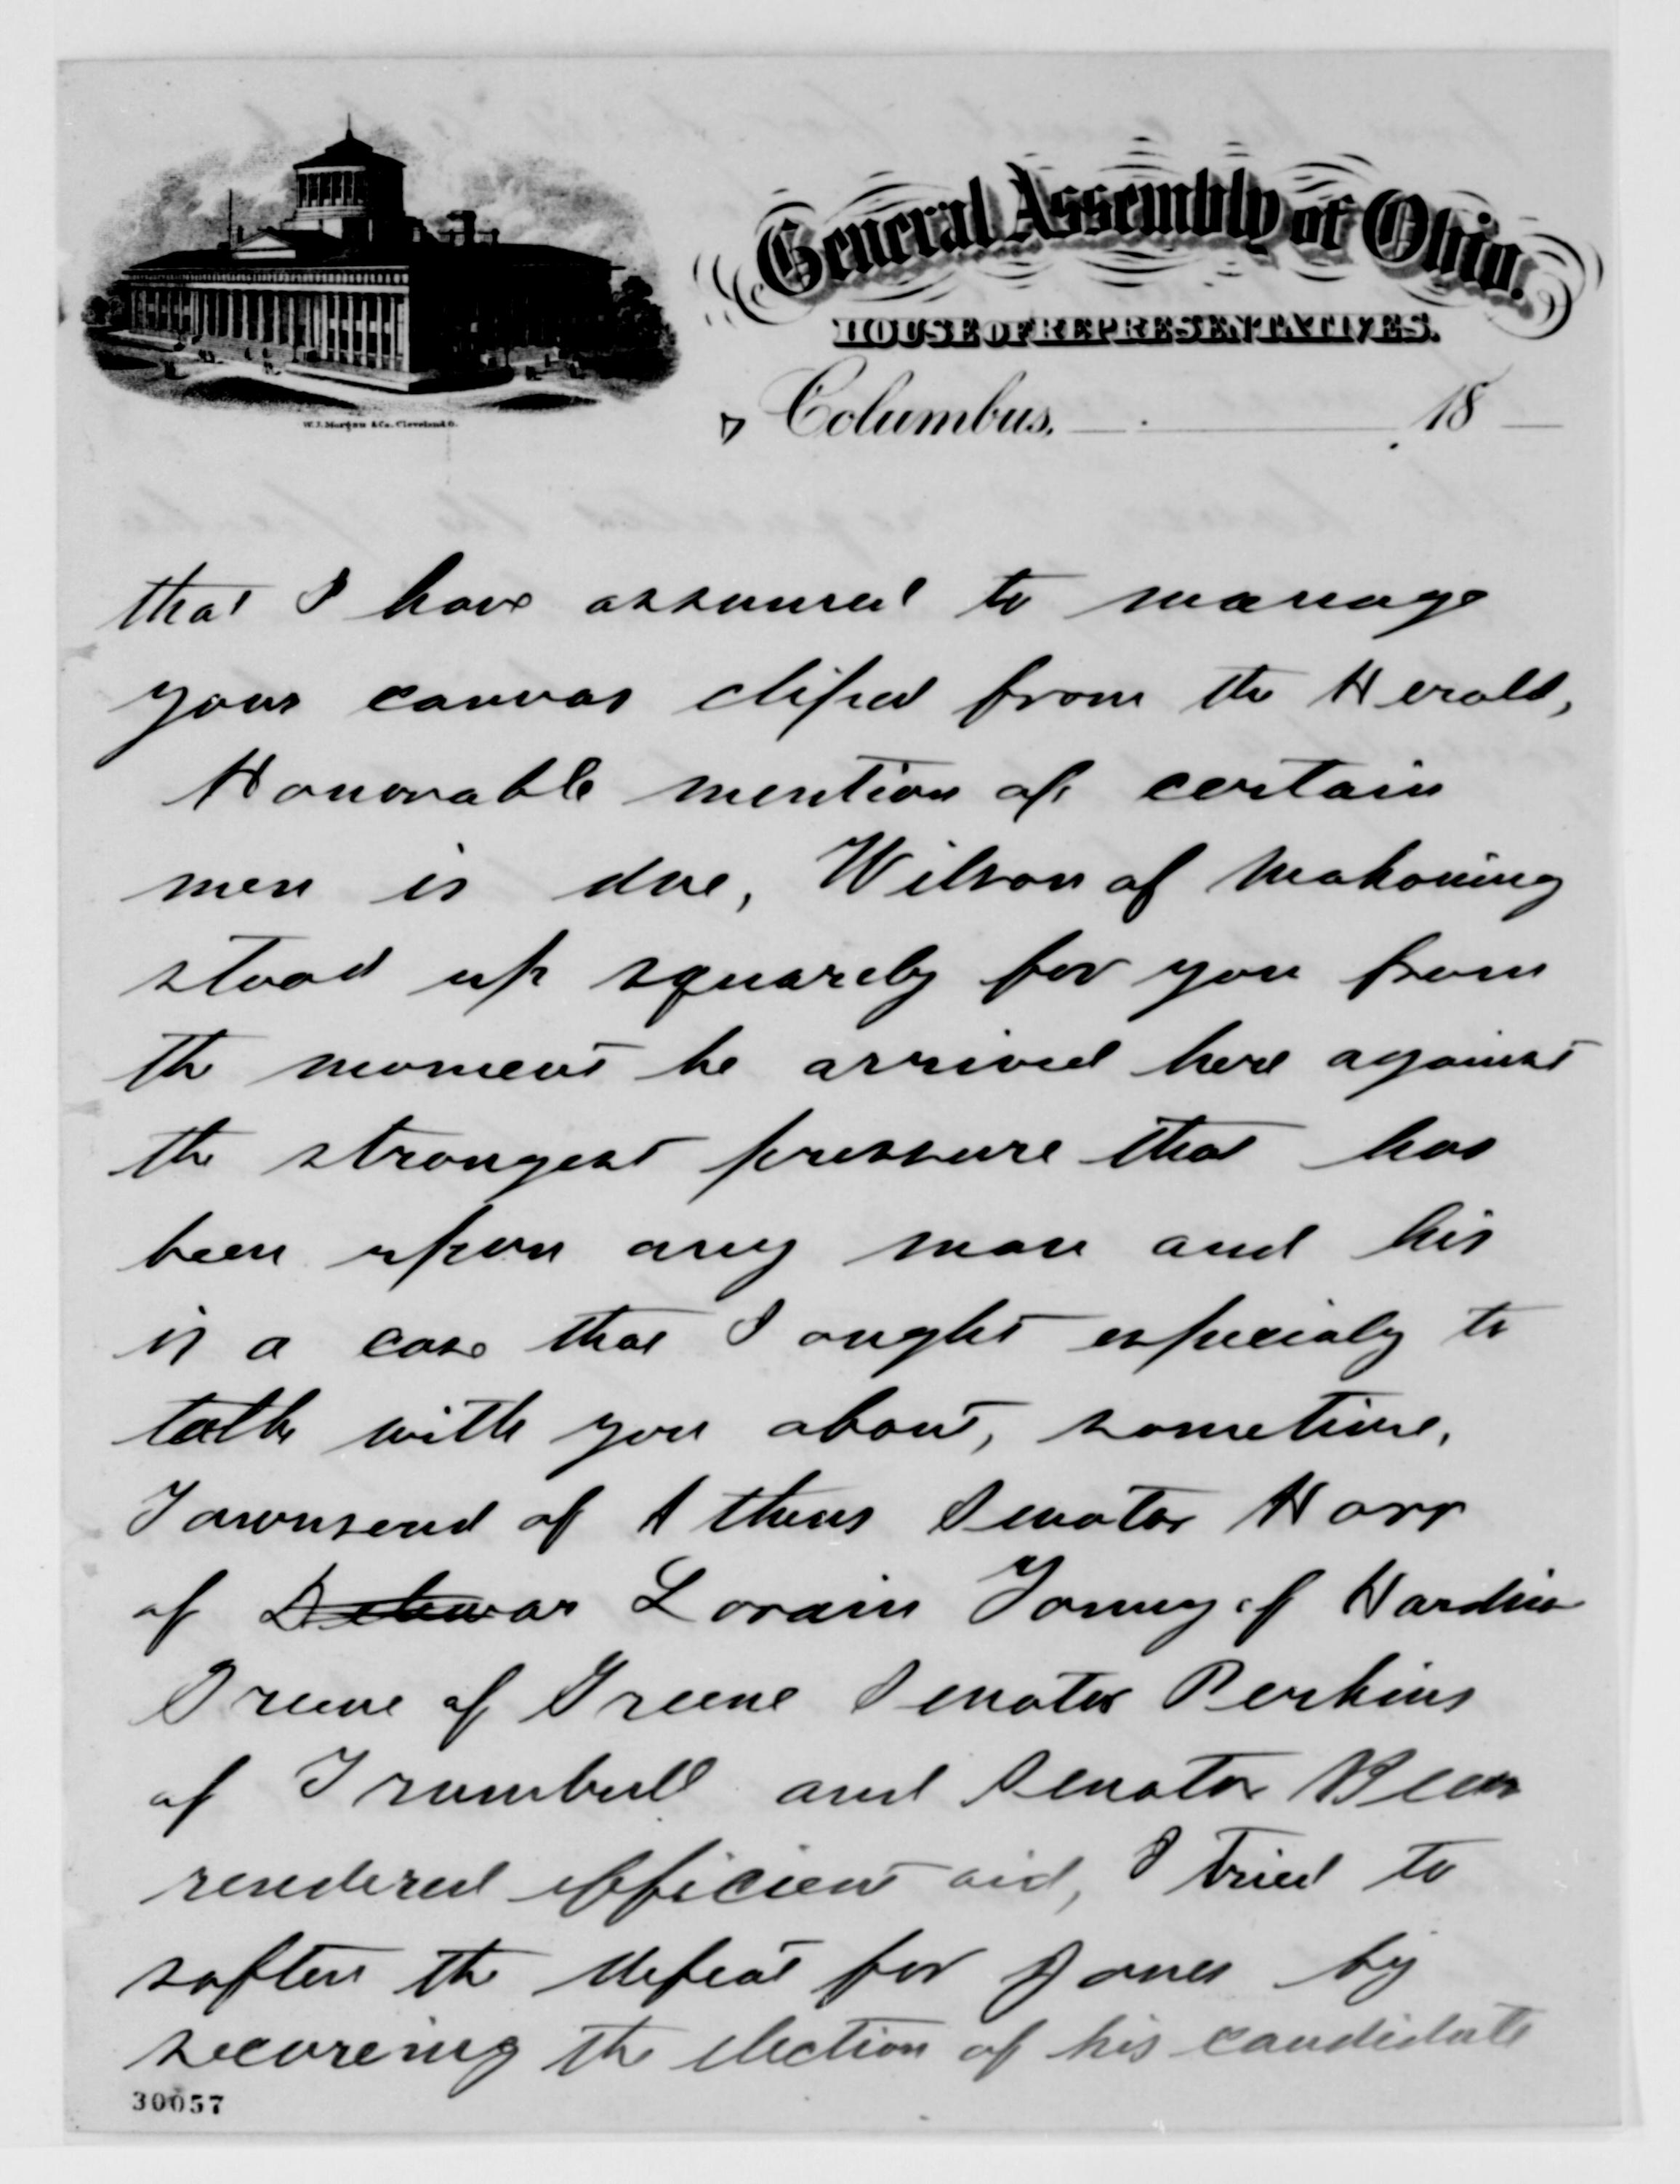 General Assembly of Ohio.
HOUSE OF REPRESENTATIVES.
Columbus, 18
W.J. Morgan & Co. Cleveland O.
that I have assumed to manage
your canvas cliped from the Herald,
Honorable mention of certain
men is due, Wilson of Mahoning
stood up squarely for you from
the moment he arrived here against
the strongest pressure that has
been upon any man and his
is a case that I ought especialy to
talk with you about, sometime,
Townsend of Athens Senator Horr
of Lorain of Hardin
Greene of Greene Senator Perkins
of Trumbull and Senator
rendered efficient aid, I tried to
soften the defeat for Jones by
secureing the election of his candidate
30057